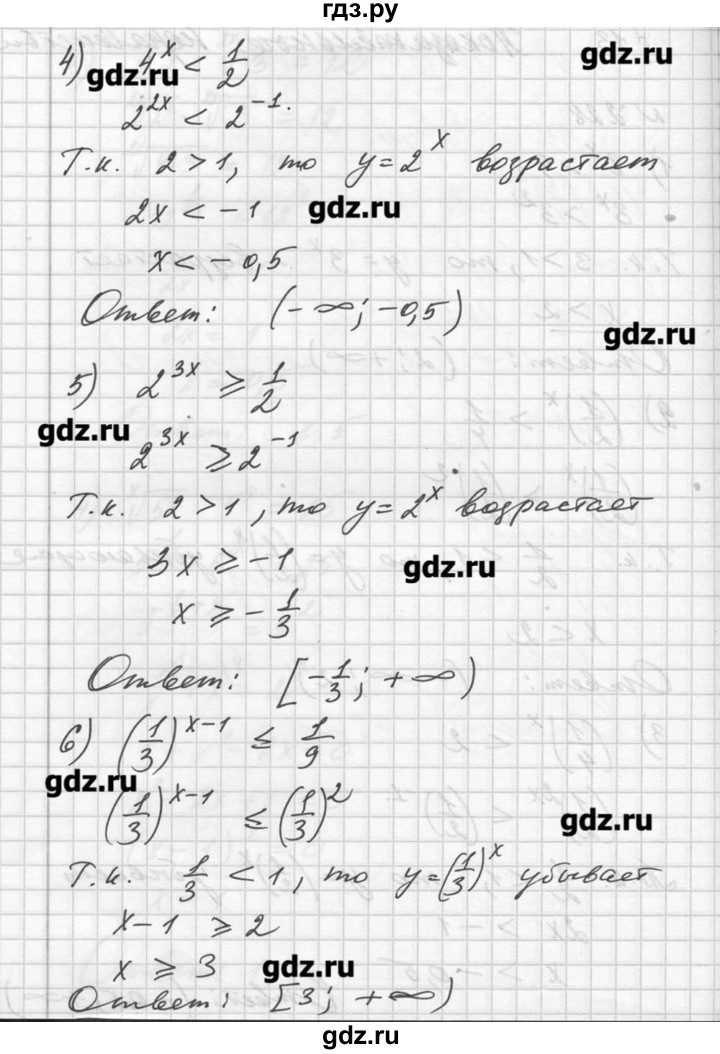 гдз.ру
4) 4^x < 1/2
gdz.ru gdz.ru
2^{2x} < 2^{-1}.
Т.к. 2 > 1, то y = 2^x возрастает
2x < -1 gdz.ru
x < -0,5
Ответ: (-∞; -0,5)
gdz.ru
5) 2^{3x} ⩾ 1/2
gdz.ru
2^{3x} ⩾ 2^{-1}
Т.к. 2 > 1, то y = 2^x возрастает
3x ⩾ -1 gdz.ru
x ⩾ -1/3
Ответ: [-1/3; +∞)
6) (1/3)^{x-1} ≤ 1/9
gdz.ru
(1/3)^{x-1} ≤ (1/3)^2
gdz.ru
Т.к. 1/3 < 1, то y = (1/3)^x убывает
x-1 ⩾ 2
x ⩾ 3 gdz.ru
Ответ: [3; +∞)
gdz.ru